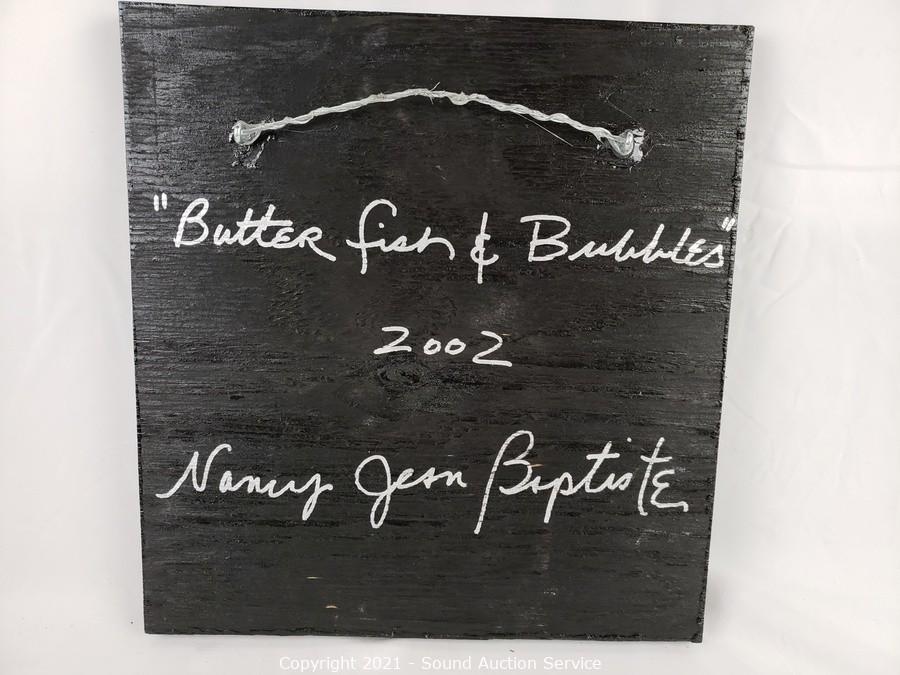 "Butter fish & Bubbles"
2002
Nancy Jean Baptiste
Copyright 2021 - Sound Auction Service